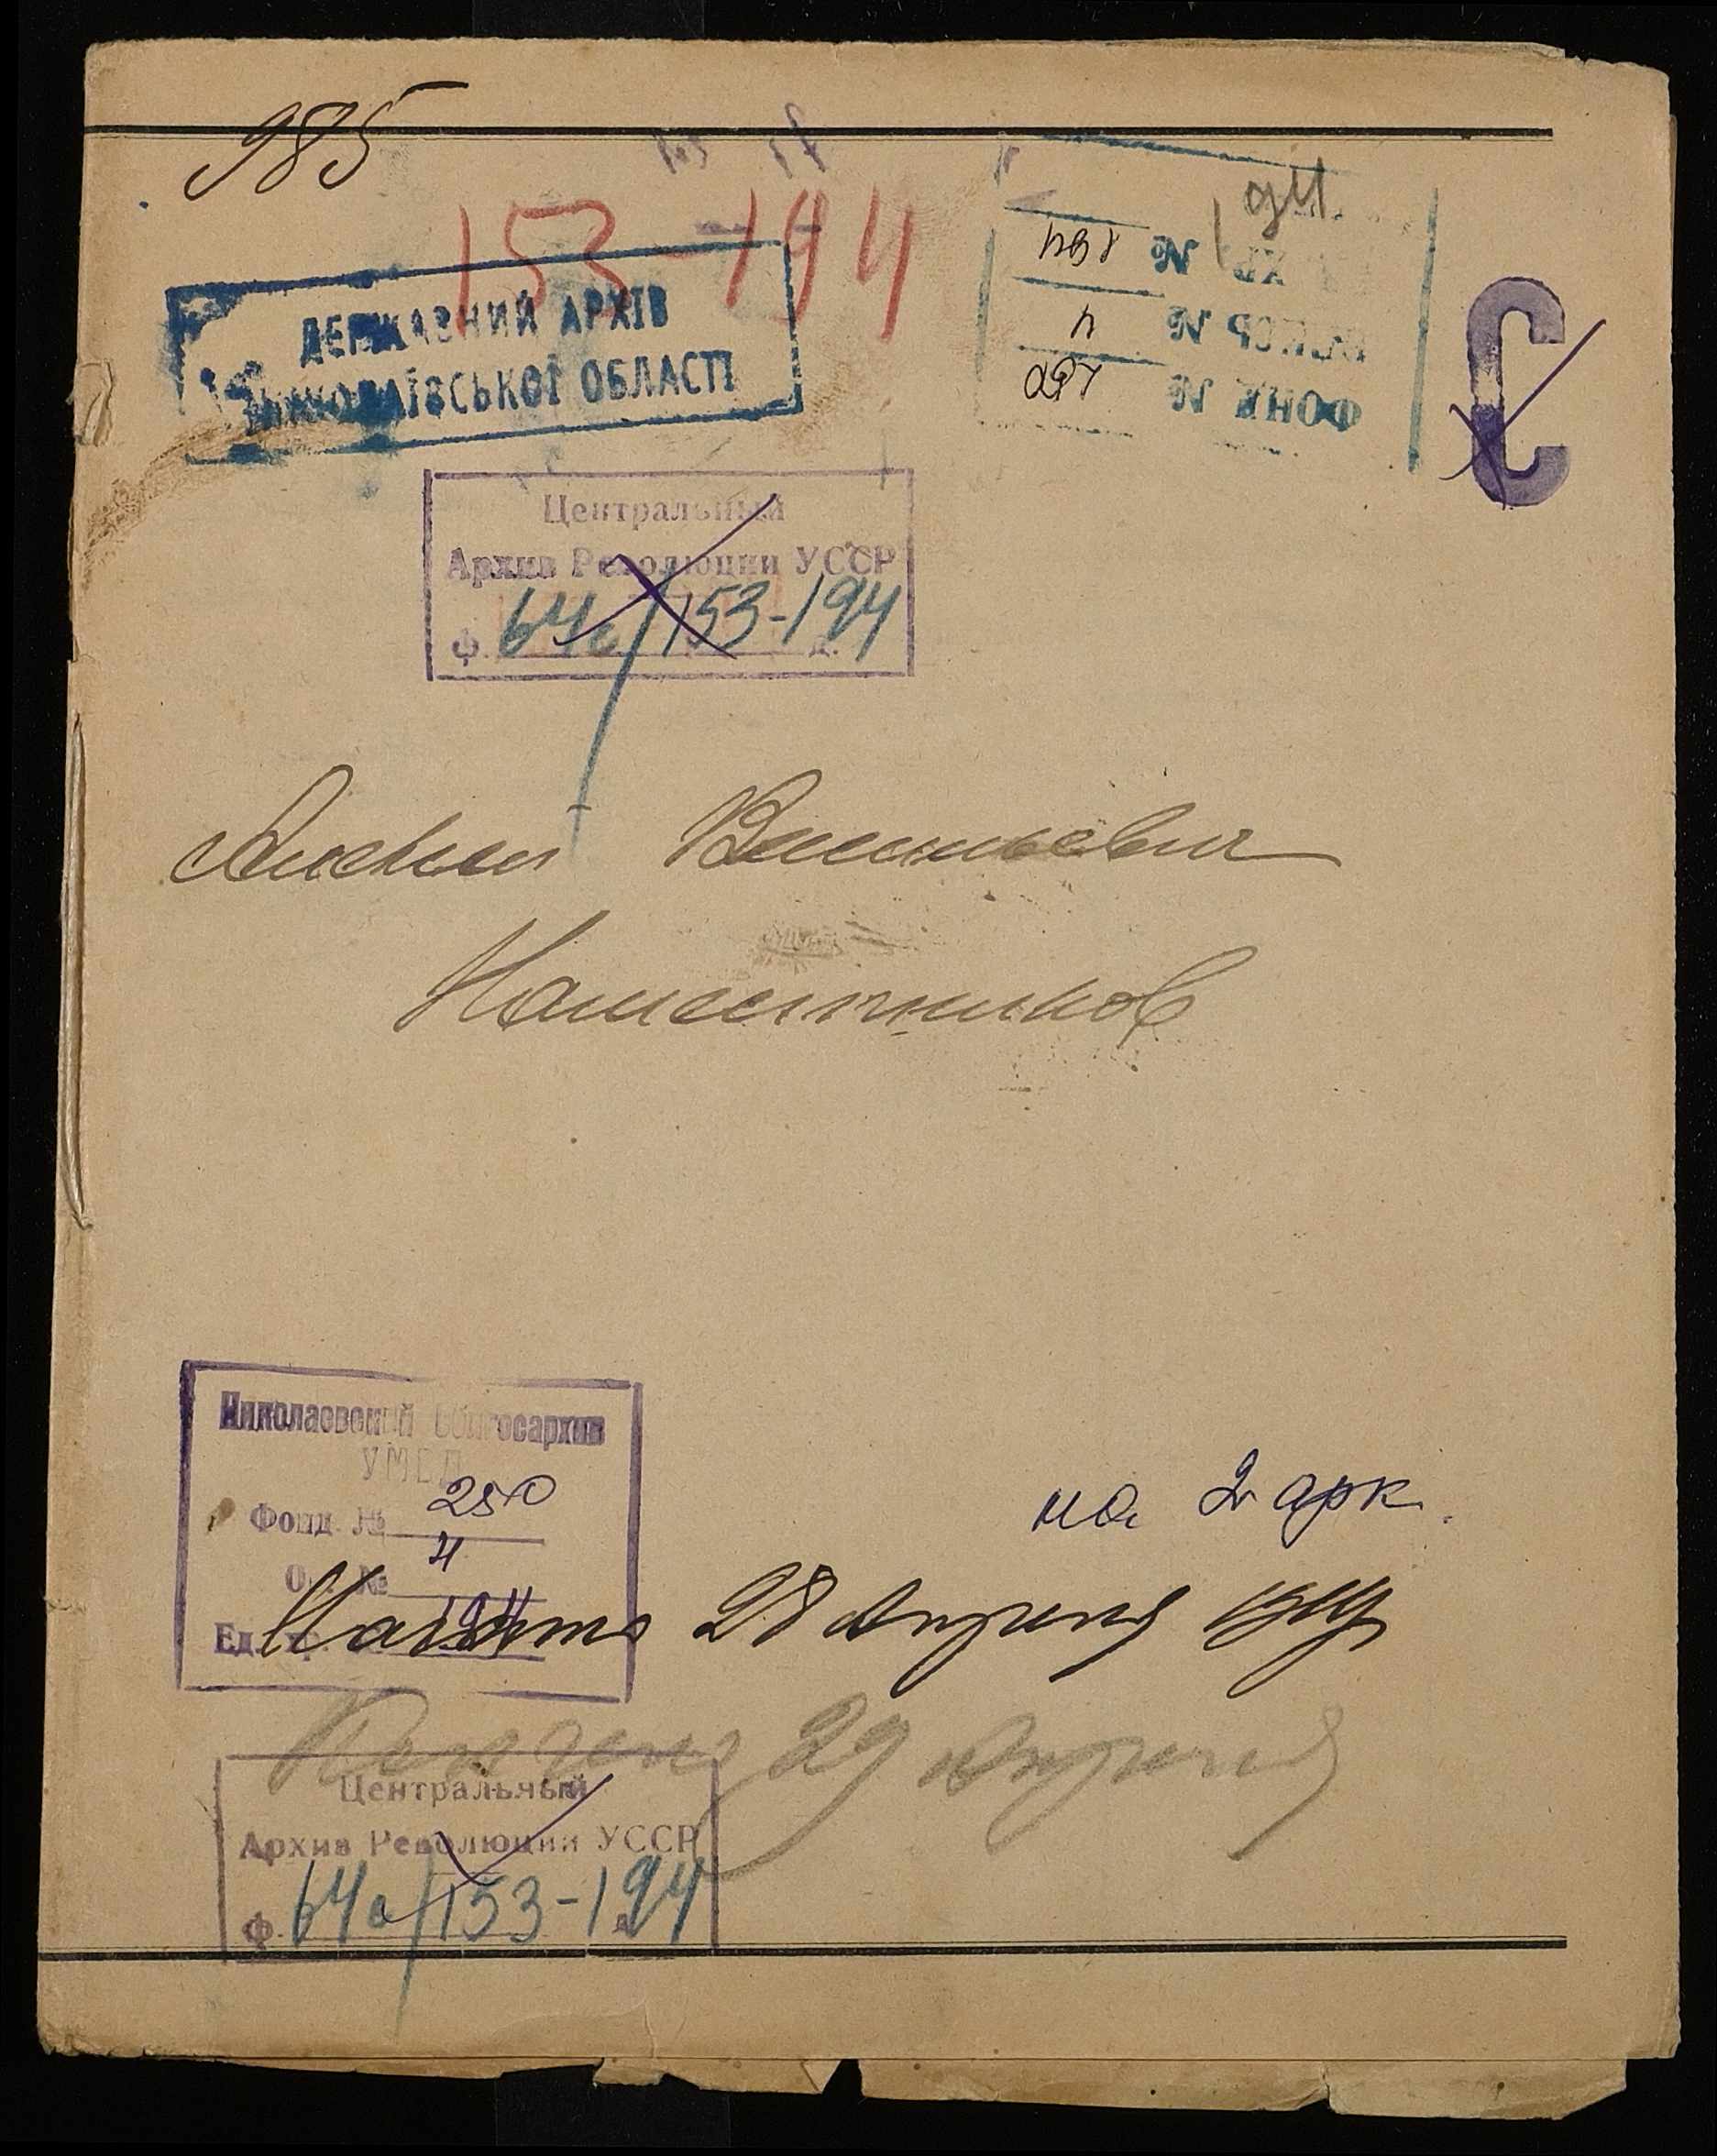 985
153-194
ДЕРЖАВНИЙ АРХІВ
МИКОЛАЇВСЬКОЇ ОБЛАСТІ
№ 194
№ 4
ФОНД № 250
С
Центральный
Архив Революции УССР
ф. 64с/153-194 д.
Васильевич
Николаевский Облгосархив
УМВД
Фонд № 250
Оп. № 4
Ед. хр. 194
на 2 арк.
Начато 28 Апреля
Кончено 29 Апреля
Центральный
Архив Революции УССР
Ф. 64с/153-194